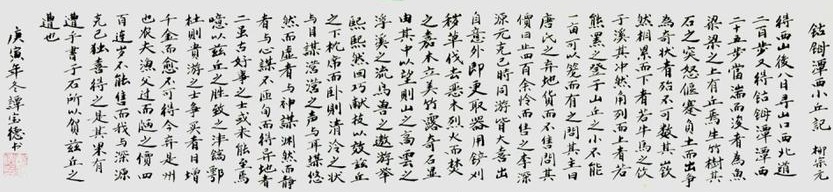 鈷鉧潭西小丘記 柳宗元
得西山後八日尋山口西北道
二百步又得鈷鉧潭潭西
二十五步當湍而浚者為魚
梁梁之上有丘焉生竹樹其
石之突怒偃蹇負土而出爭
為奇狀者殆不可數其嶔
然相累而下者若牛馬之飲
于溪其沖然角列而上者若
熊羆之登于山丘之小不能
一亩可以籠而有之問其主曰
唐氏之棄地貨而不售問其
價曰止四百余憐而售之李深
源元克己時同游皆大喜出
自意外即更取器用鏟刈
穢草伐去惡木烈火而焚
之嘉木立美竹露奇石显
由其中以望則山之高雲之
浮溪之流鳥獸之遨游舉
熙熙然回巧獻技以效兹丘
之下枕席而卧則清泠之状
与目謀瀯瀯之声与耳謀悠
然而虛者与神謀渊然而靜
者与心謀不匝旬而得异地者
二虽古好事之士或未能至焉
噫以兹丘之勝致之灃鎬鄠
杜則貴游之士爭买者日增
千金而愈不可得今弃是州
也农夫漁父过而陋之價四
百連岁不能售而我与深源
克己独喜得之是其果有
遭乎書于石所以賀兹丘之
遭也
庚寅年冬譚宝德书